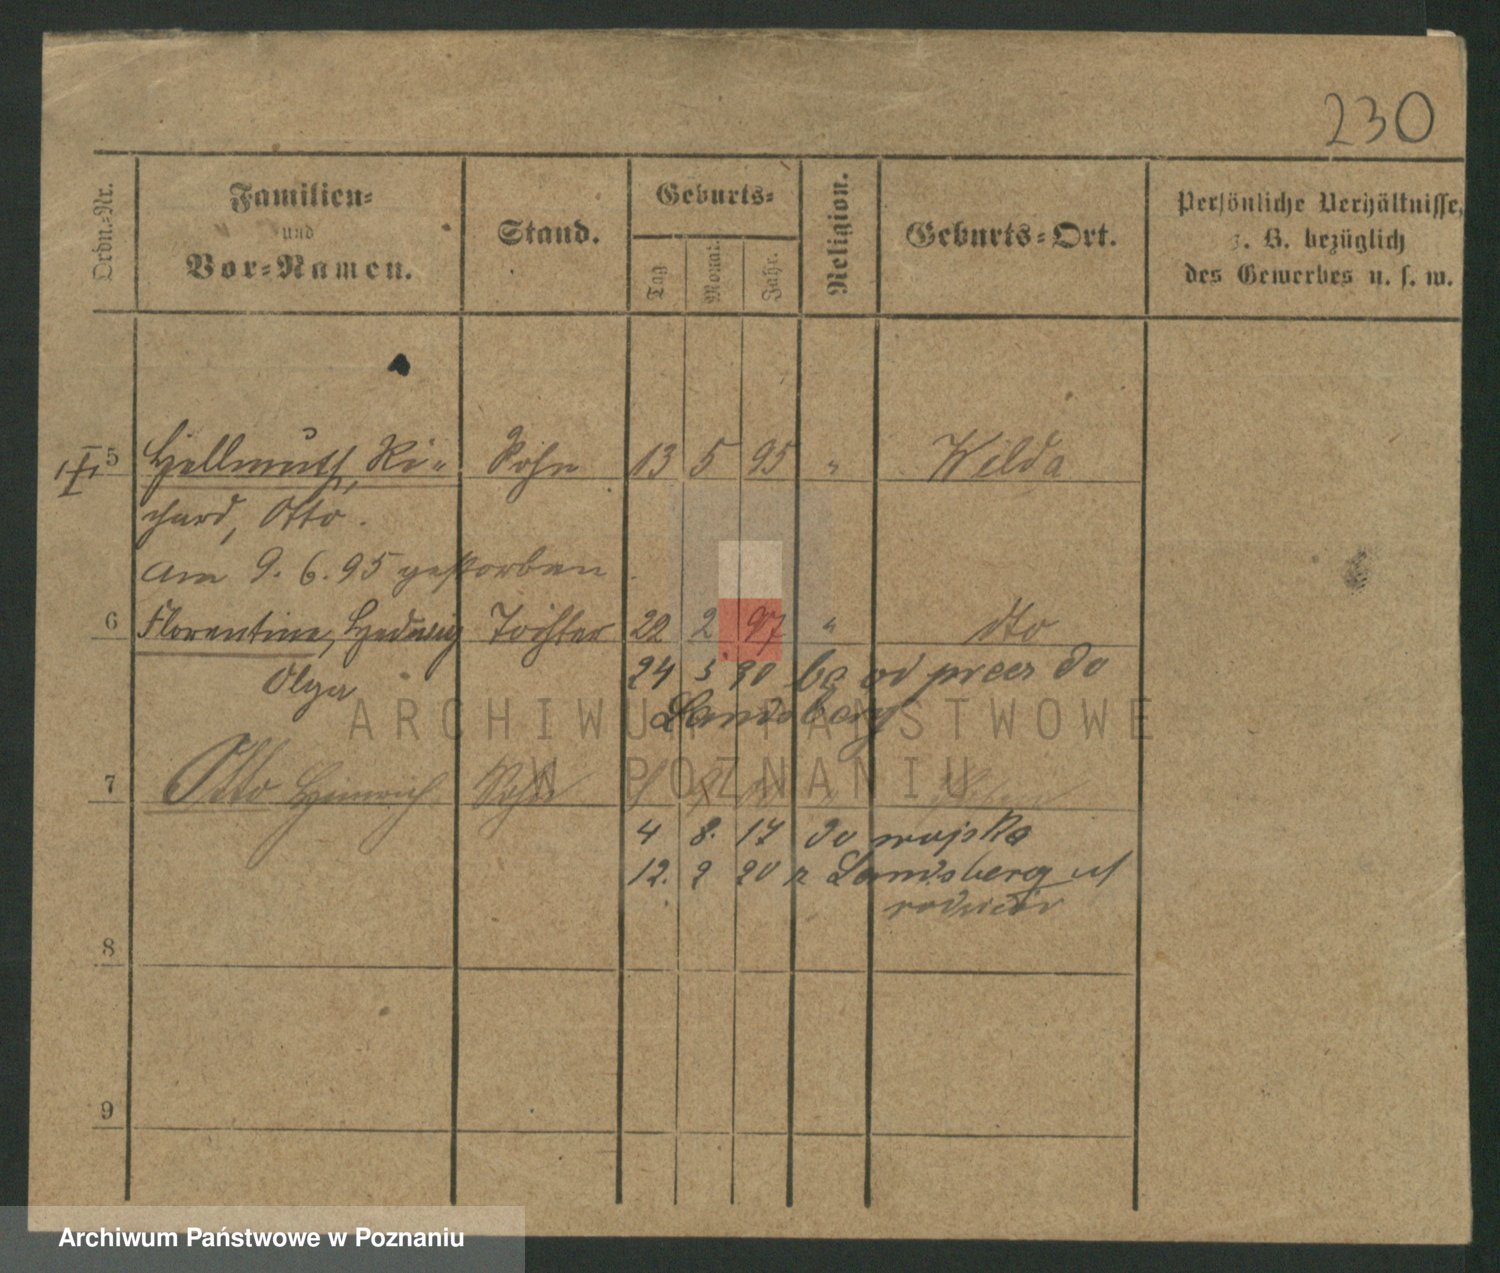 230
Ordn.-Nr.
Familien-
und
Vor-Namen.
Stand.
Geburts-
Tag
Monat
Jahr.
Religion.
Geburts-Ort.
Persönliche Verhältnisse,
z. B. bezüglich
des Gewerbes u. s. w.
5 Hellmuth, Ri- Sohn 13 5 95 " Wilda
chard, Otto.
am 9. 6. 95 gestorben.
6 Florentine, Hedwig Tochter 22 2 97 " dto
Olga
24 5 20 do
Landsberg
ARCHIWUM PAŃSTWOWE
W POZNANIU
7 Otto Heinrich Sohn
4 8. 17 do wojska
12. 2 20 z Landsberg
8
9
Archiwum Państwowe w Poznaniu